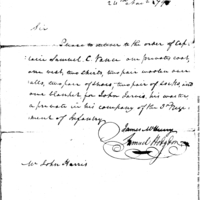 Sir
Please to deliver to the order of Cap-
Samuel C. Vance one coat,
one vest, two shirts, two pair woolen over-
alls, two pair of shoes, two pair of socks, and
one blanket for John Jarvis, his waiter,
a private in his company of the 3d Regi-
ment of Infantry
James McHenry
Samuel Hodgdon
Mr John Harris